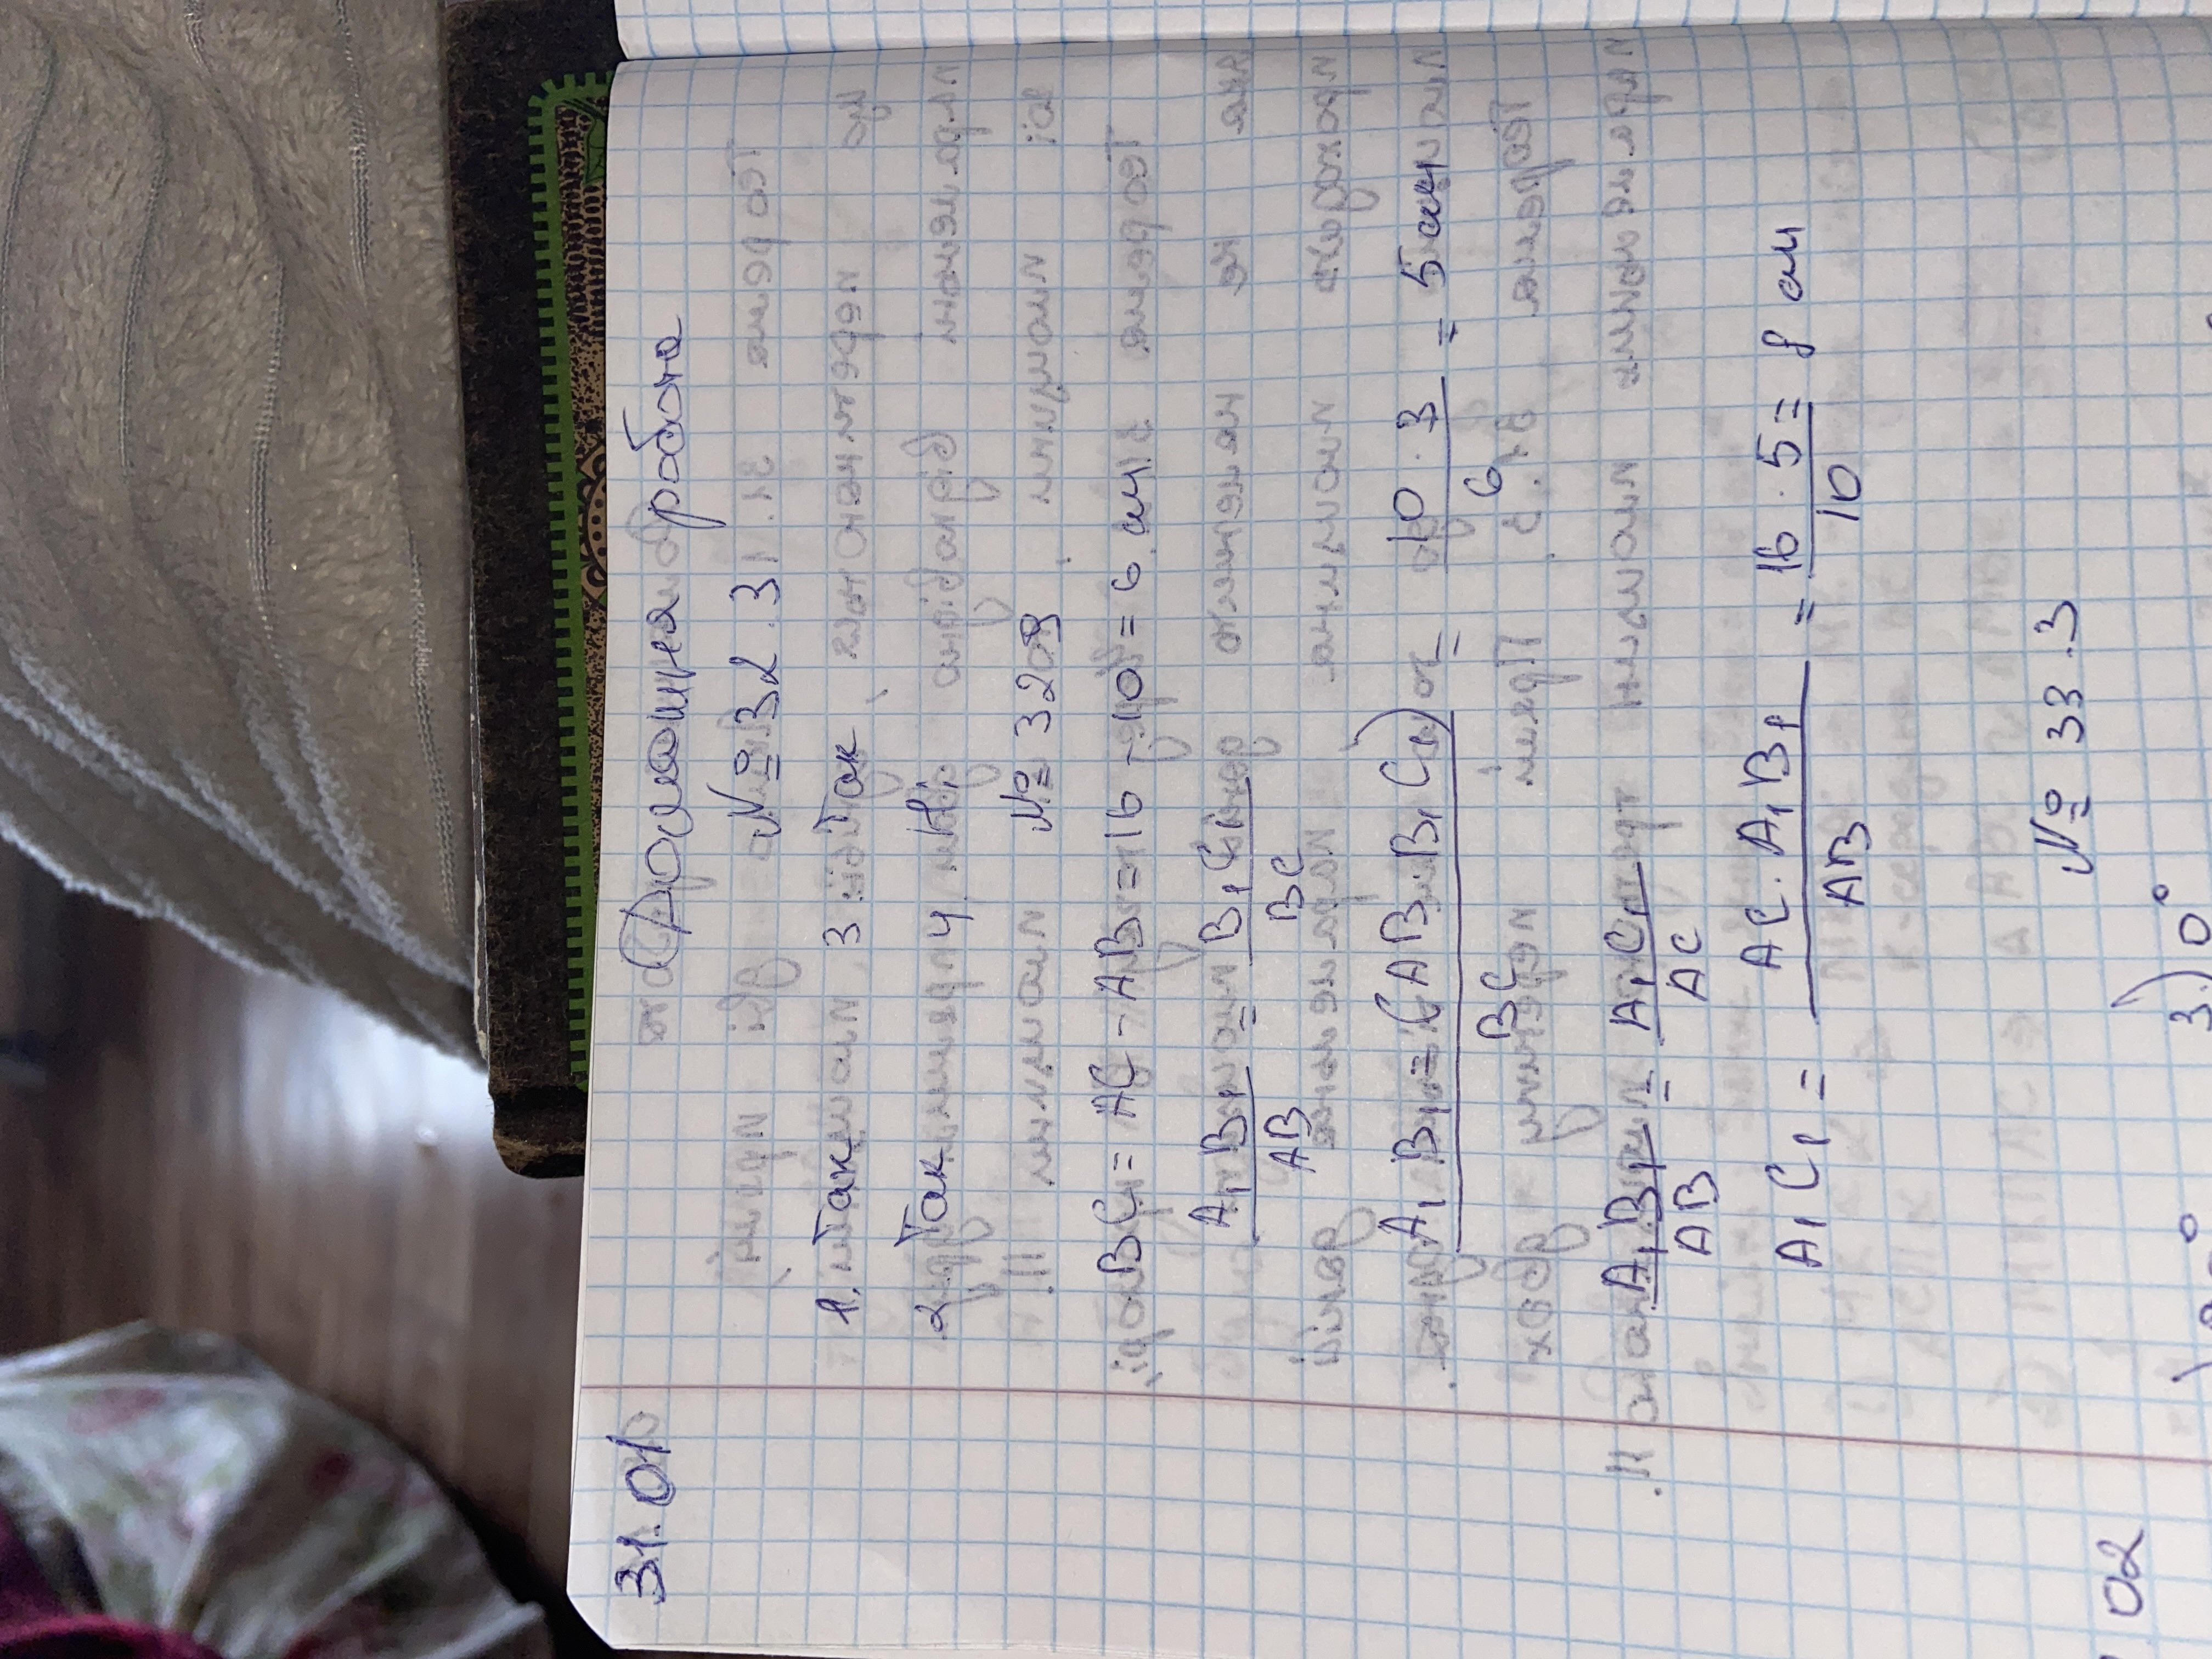 31.01 Домашня робота
№ 32.3
1. Так 3 Так
2 Так 4. Ні
№ 3209
BC = AC - AB = 16 - 10 = 6 см
A₁B₁/AB = B₁C₁/BC
A₁B₁ = (AB · B₁C₁)/BC = 10 · 3/6 = 5 см
A₁B₁/AB = A₁C₁/AC
A₁C₁ = AC · A₁B₁/AB = 16 · 5/10 = 8 см
02 № 33.3
3) 0°